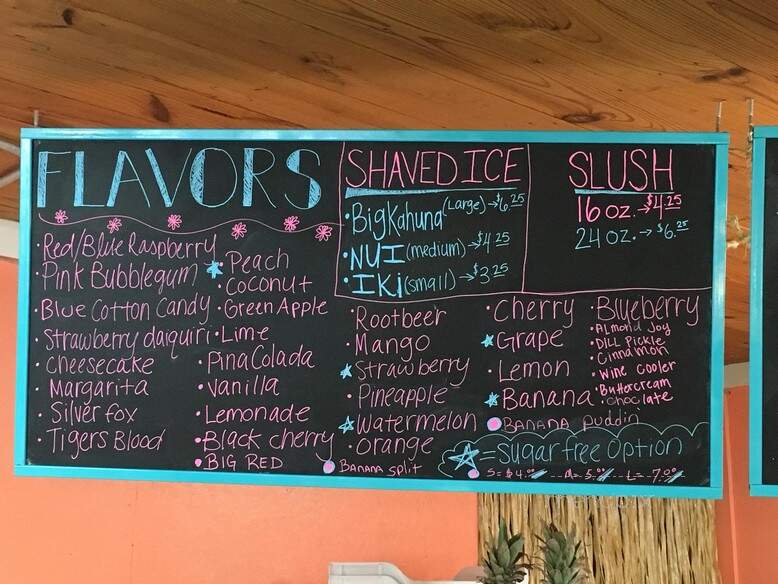 FLAVORS
• Red/Blue Raspberry
• Pink Bubblegum
• Blue Cotton Candy
• Strawberry daiquiri
• Cheesecake
• Margarita
• Silver fox
• Tigers Blood
★ • Peach
• Coconut
• Green Apple
• Lime
• Pina Colada
• Vanilla
• Lemonade
• Black cherry
• BIG RED
SHAVED ICE
• Big Kahuna (Large) → $6.25
• NUI (medium) → $4.25
• IKi (small) → $3.25
SLUSH
16 oz. → $4.25
24 oz. → $6.25
• Rootbeer
• Mango
★ Strawberry
• Pineapple
★ Watermelon
• Orange
• BANANA Split
• Cherry
★ Grape
• Lemon
★ Banana
• BANANA Puddin
• Blueberry
• ALMOND Joy
• DILL Pickle
• Cinnamon
• Wine cooler
• Buttercream
• choclate
★ = Sugar free Option
• S= $4.00 -- M= 5.00 -- L= 7.00